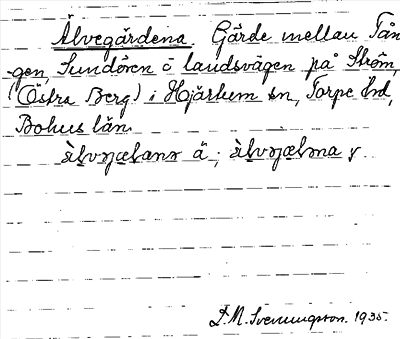 Älvegärdena. Gärde mellan Tån
gen, Sundören o landsvägen på Ström,
(Östra Berg) i Hjärtum sn, Torpe hd,
Bohus län.
ä ;
D. M. Svenungsson. 1935.